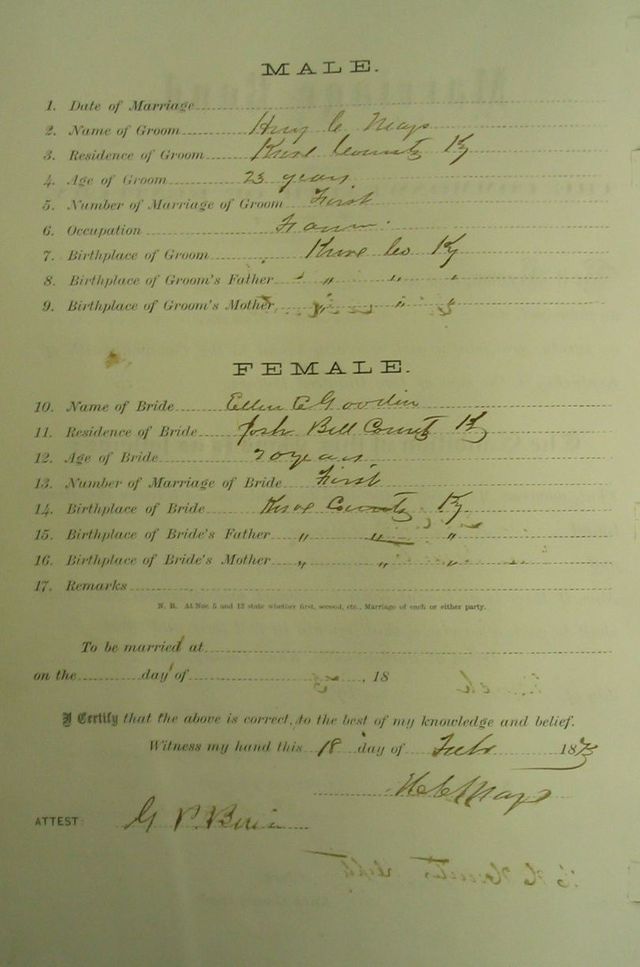 MALE.
1. Date of Marriage
2. Name of Groom Hny C Mays
3. Residence of Groom Knox County Ky
4. Age of Groom 23 years
5. Number of Marriage of Groom First
6. Occupation Farm
7. Birthplace of Groom Knox Co Ky
8. Birthplace of Groom's Father " " "
9. Birthplace of Groom's Mother " " "
FEMALE.
10. Name of Bride Ellen E Goodin
11. Residence of Bride Josh Bell County Ky
12. Age of Bride 20 years
13. Number of Marriage of Bride First
14. Birthplace of Bride Knox County Ky
15. Birthplace of Bride's Father " " "
16. Birthplace of Bride's Mother " " "
17. Remarks
N. B. At Nos. 5 and 13 state whether first, second, etc., Marriage of each or either party.
To be married at
on the day of , 18
I Certify that the above is correct, to the best of my knowledge and belief.
Witness my hand this 18 day of Feb 1873
H C Mays
ATTEST: G. P.